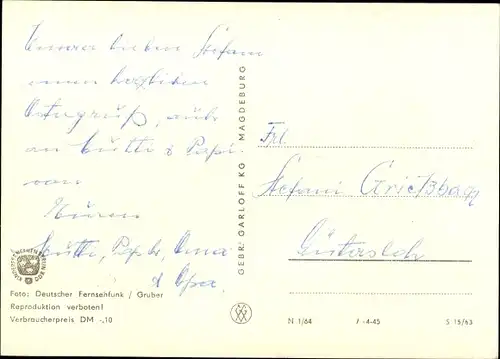 Unserer lieben Stefani
einen herzlichen
Ostergruß, auch
an Mutti & Papi.
von
Euren
Mutti, Papi, Oma
& Opa.
Foto: Deutscher Fernsehfunk / Gruber
Reproduktion verboten!
Verbraucherpreis DM -,10
GEBR. GARLOFF KG MAGDEBURG
Frl.
Stefani Grietzbach
Gütersloh
N 1/64 7-4-45 S 15/63